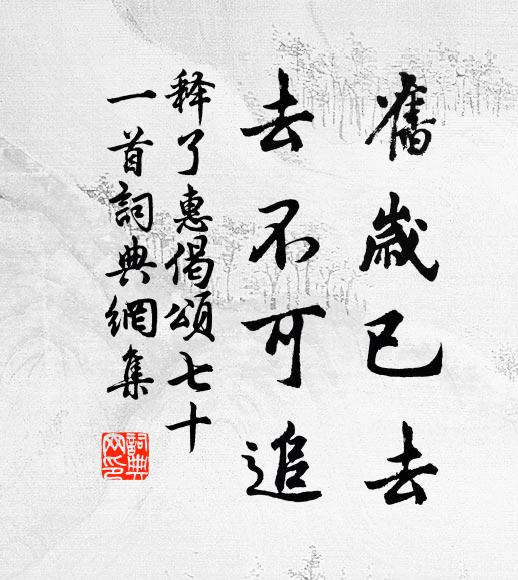 舊歲已去
去不可追
释了惠偈頌七十
一首詞典網集
詞典
网印